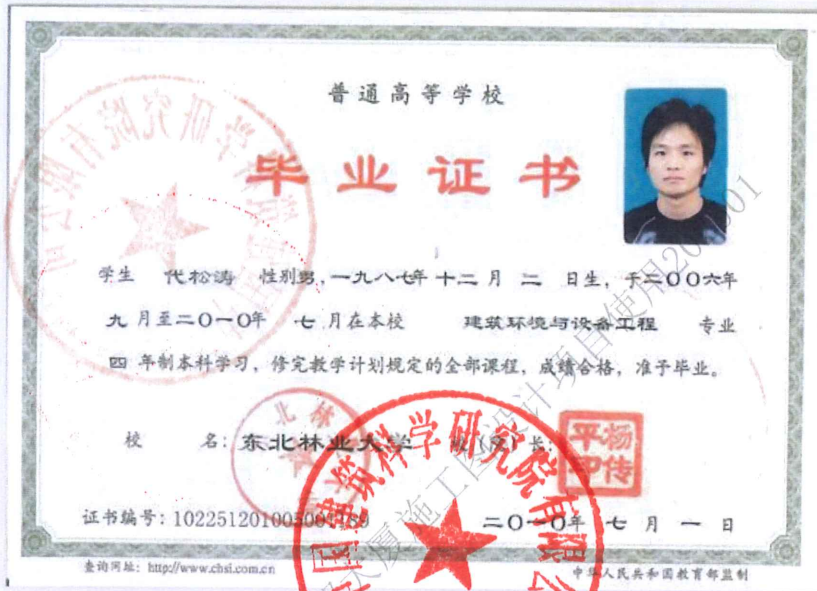 普通高等学校
毕业证书
学生 代松涛 性别男,一九八七年十二月二日生,于二〇〇六年
九月至二〇一〇年七月在本校 建筑环境与设备工程 专业
四年制本科学习,修完教学计划规定的全部课程,成绩合格,准予毕业。
校 名:东北林业大学 校(院)长:
杨传平印
证书编号:102251201005
二〇一〇年七月一日
查询网址:http://www.chsi.com.cn
中华人民共和国教育部监制
国建筑科学研究院有限公
大厦施工图设计项目使用